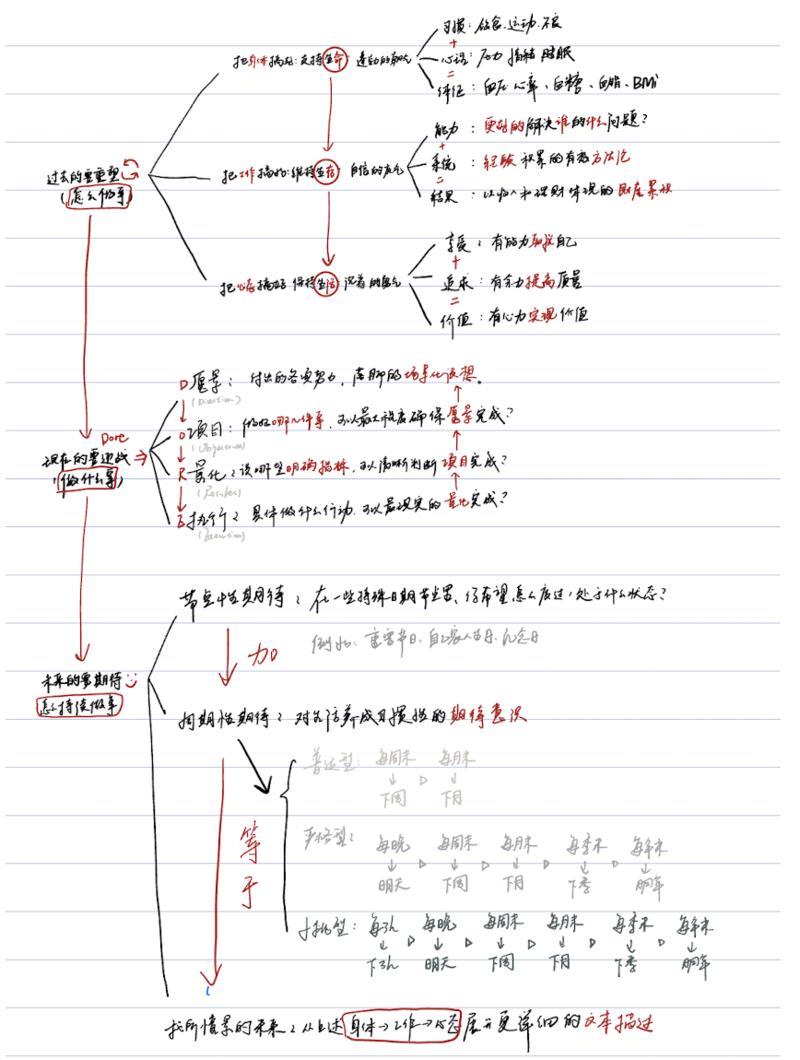 习惯：饮食、运动、不良
+
把身体搞好：支持生命 运动的
心理：压力 情绪 睡眠
=
体征：血压 心率、血糖、血脂、BMI
能力：更好的解决谁的什么问题？
+
过去的要重塑
(怎么做事)
把工作搞好：维持生存 自信的底气
系统：经验积累的有效方法论
=
结果：以收入和理财体现的财库累积
享受：有能力取悦自己
+
把心态搞好 保持生活 沉着的
追求：有余力提高质量
=
价值：有心力实现价值
D愿景：付出的各项努力，落脚的场景化设想。
(Direction)
O项目：做好哪几件事，可以最大程度确保愿景完成？
Dore
现在的要迎战
(做什么事)
R量化：设哪些明确指标，可以清晰判断项目完成？
(Results)
E执行：具体做什么行动，可以最现实的量化完成？
(Execution)
节点性期待：在一些特殊日期节点里、你希望怎么度过，处于什么状态？
加
例如：重要节日、自己家人生日、纪念日
未来的要期待
怎么持续做事
周期性期待：对生活养成习惯性的期待意识
普通型：每周末 每月末
↓ ▷ ↓
下周 下月
等
于
严格型：每晚 每周末 每月末 每季末 每年末
↓ ▷ ↓ ▷ ↓ ▷ ↓ ▷ ↓
明天 下周 下月 下季 明年
每3h 每晚 每周末 每月末 每季末 每年末
↓ ▷ ↓ ▷ ↓ ▷ ↓ ▷ ↓ ▷ ↓
下3h 明天 下周 下月 下季 明年
我所憧憬的未来：从上述身体→工作→心态展开更详细的文本描述